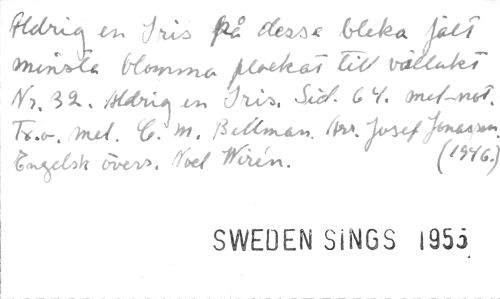 Aldrig en Iris på dessa bleka fält
minsta blomma plockat till vällukt
Nr. 32. Aldrig en Iris. Sid. 64. mel-not.
Tx.o. mel. C. M. Bellman. Arr. Josef Jonasson.
Engelsk övers. Noel Wirén. (1946.)
SWEDEN SINGS 1955